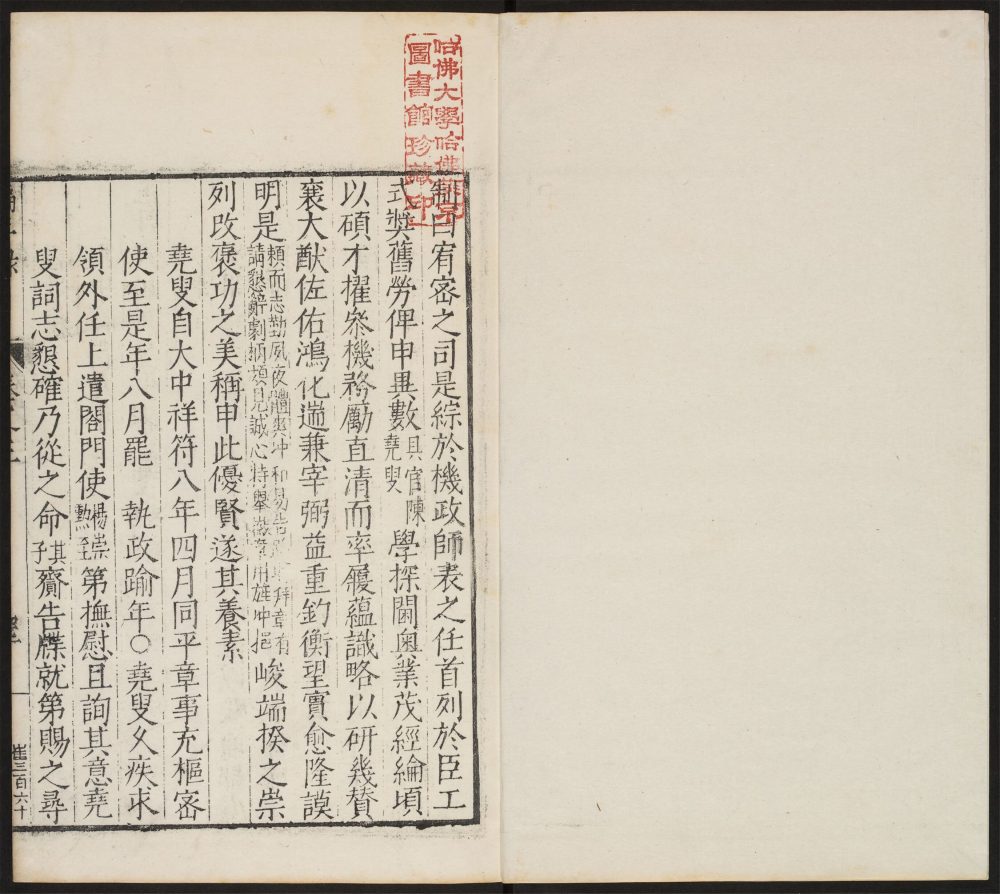 哈佛大學哈佛燕京
圖書館珍藏印
制曰宥密之司是綜於機政師表之任首列於臣工
式奬舊勞俾申異數具官陳堯叟學探閫奥業茂經綸頃
以碩才擢叅機務勵直清而率履蘊識略以研幾賛
襄大猷佐佑鴻化遄兼宰弼益重鈞衡望實愈隆謨
明是頼而志勤夙夜體爽冲和易告章有請懇辭劇柄載見誠心特舉用旌冲挹峻端揆之崇
列改褒功之美稱申此優賢遂其養素
堯叟自大中祥符八年四月同平章事充樞密
使至是年八月罷 執政踰年○堯叟久疾求
領外任上遣閤門使楊崇勲至第撫慰且詢其意堯
叟詞志懇確乃從之命其子齎告牒就第賜之尋
崔三百六十